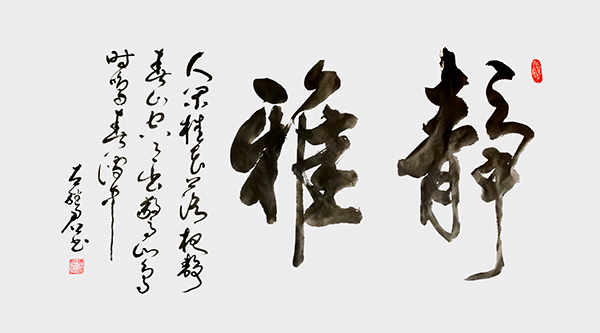 静雅
人闲桂花落夜静
春山空月出惊山鸟
时鸣春涧中